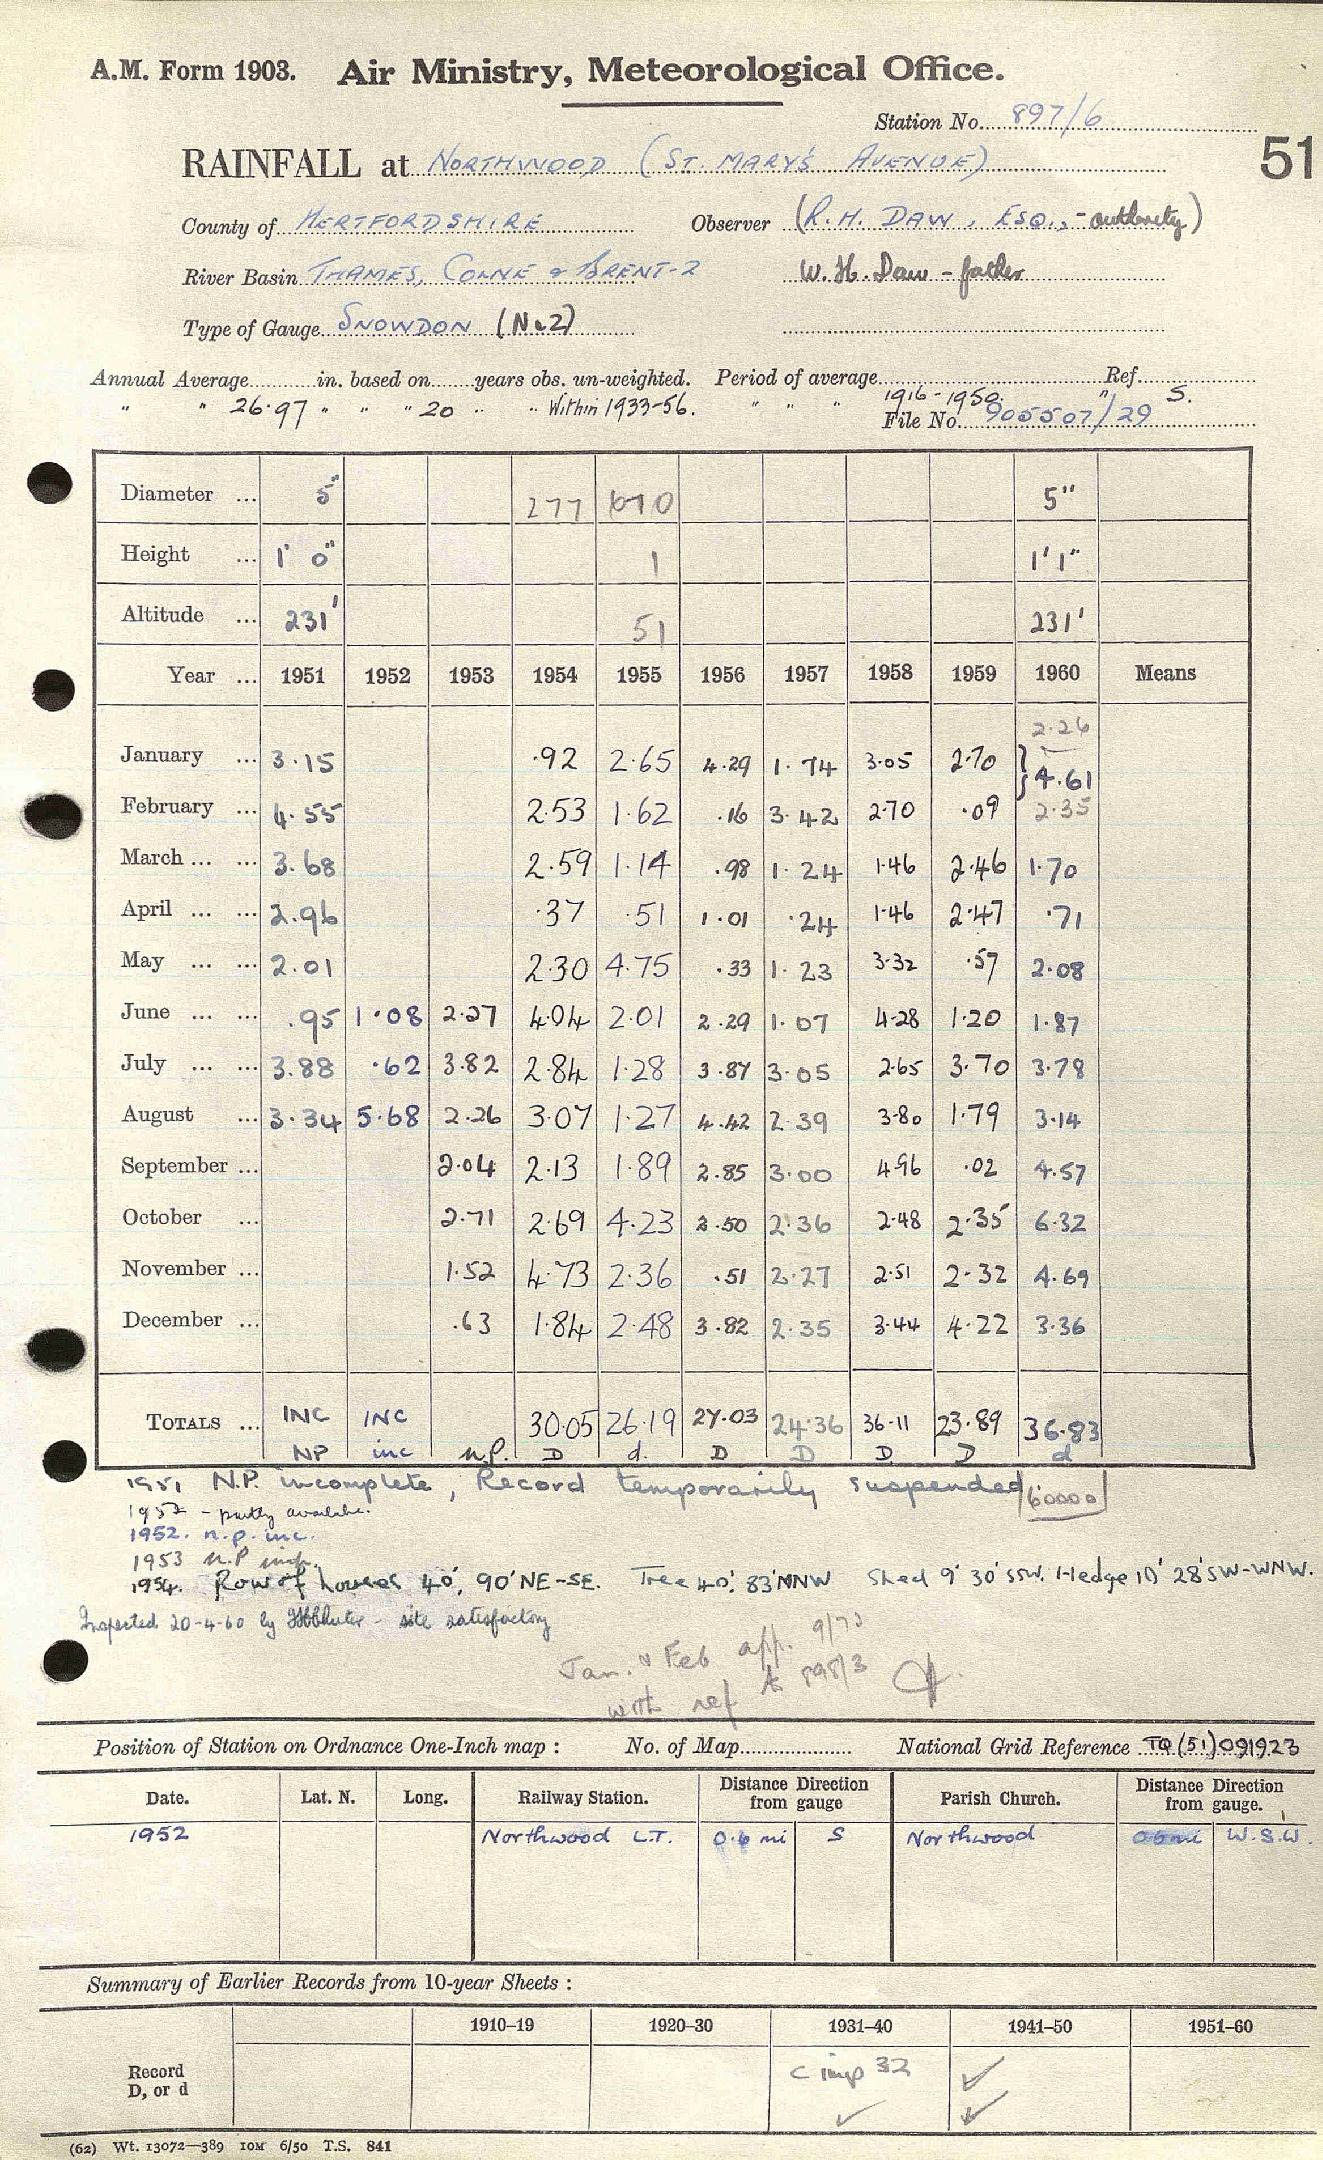 A.M. Form 1903. Air Ministry, Meteorological Office.
Station No. 897/6
51
RAINFALL at NORTHWOOD (ST. MARY'S AVENUE)
County of HERTFORDSHIRE Observer (R.H. DAW, ESQ., - authority)
River Basin THAMES, COLNE & BRENT-2 W.H. Daw - father
Type of Gauge SNOWDON (No2)
Annual Average in. based on years obs. un-weighted. Period of average Ref.
" " 26.97 " " " 20 " " Within 1933-56. " " " 1916-1950. " S.
File No. 905507/29
Diameter ... 5" 277 670 5"
Height ... 1' 0" 1 1'1"
Altitude ... 231' 51 231'
Year ... 1951 1952 1953 1954 1955 1956 1957 1958 1959 1960 Means
2.26
January ... 3.15 .92 2.65 4.29 1.74 3.05 2.70 } 4.61
February ... 4.55 2.53 1.62 .16 3.42 2.70 .09 2.35
March ... ... 3.68 2.59 1.14 .98 1.24 1.46 2.46 1.70
April ... ... 2.96 .37 .51 1.01 .24 1.46 2.47 .71
May ... ... 2.01 2.30 4.75 .33 1.23 3.32 .57 2.08
June ... ... .95 1.08 2.27 4.04 2.01 2.29 1.07 4.28 1.20 1.87
July ... ... 3.88 .62 3.82 2.84 1.28 3.87 3.05 2.65 3.70 3.78
August ... 3.34 5.68 2.26 3.07 1.27 4.42 2.39 3.80 1.79 3.14
September ... 2.04 2.13 1.89 2.85 3.00 4.96 .02 4.57
October ... 2.71 2.69 4.23 2.50 2.36 2.48 2.35 6.32
November ... 1.52 4.73 2.36 .51 2.27 2.51 2.32 4.69
December ... .63 1.84 2.48 3.82 2.35 3.44 4.22 3.36
TOTALS ... INC INC 30.05 26.19 27.03 24.36 36.11 23.89 36.83
NP inc n.p. D d. D D D D d
1951 N.P. incomplete, Record temporarily suspended 60000
1952 - partly available.
1952. n.p. inc.
1953 N.P
1954. Row of houses 40', 90' NE-SE. Tree 40', 83' NNW Shed 9' 30' SSW. Hedge 10' 28' SW-WNW.
Inspected 20-4-60 by - site satisfactory
Jan. & Feb app. 9/73
with ref to 898/3
Position of Station on Ordnance One-Inch map : No. of Map National Grid Reference TQ (51) 091923
Date. Lat. N. Long. Railway Station. Distance from gauge Direction Parish Church. Distance from gauge. Direction
1952 Northwood L.T. 0.6 mi S Northwood 0.6 mi W.S.W.
Summary of Earlier Records from 10-year Sheets :
1910–19 1920–30 1931–40 1941–50 1951–60
Record D, or d c imp 32 ✓
✓ ✓
(62) Wt. 13072—389 10M 6/50 T.S. 841